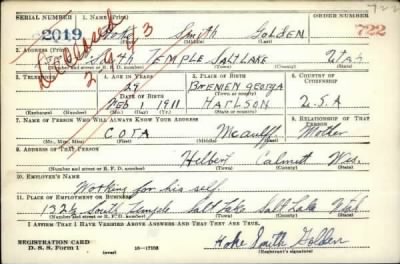 722
SERIAL NUMBER 1. NAME (Print) ORDER NUMBER
2019 Hoke Smith Golden 722
(First) (Middle) (Last)
Deceased
2. ADDRESS (Print)
South TEMPLE SALT LAKE Utah
(Number and street or R. F. D. number) (Town) (County) (State)
3. TELEPHONE 4. AGE IN YEARS 5. PLACE OF BIRTH 6. COUNTRY OF CITIZENSHIP
29 BREMEN GEORGIA
DATE OF BIRTH (Town or county)
Feb 1 1911 HARLSON U.S.A
(Exchange) (Number) (Mo.) (Day) (Yr.) (State or country)
7. NAME OF PERSON WHO WILL ALWAYS KNOW YOUR ADDRESS 8. RELATIONSHIP OF THAT PERSON
CORA Mother
(Mr., Mrs., Miss) (First) (Middle) (Last)
9. ADDRESS OF THAT PERSON
Hilbert Calmett Wis.
(Number and street or R. F. D. number) (Town) (County) (State)
10. EMPLOYER'S NAME
Working for his self
11. PLACE OF EMPLOYMENT OR BUSINESS
132½ South Temple Salt Lake Salt Lake Utah
(Number and street or R. F. D. number) (Town) (County) (State)
I AFFIRM THAT I HAVE VERIFIED ABOVE ANSWERS AND THAT THEY ARE TRUE.
REGISTRATION CARD
D. S. S. Form 1 16—17105 Hoke Smith Golden
(Registrant's signature)